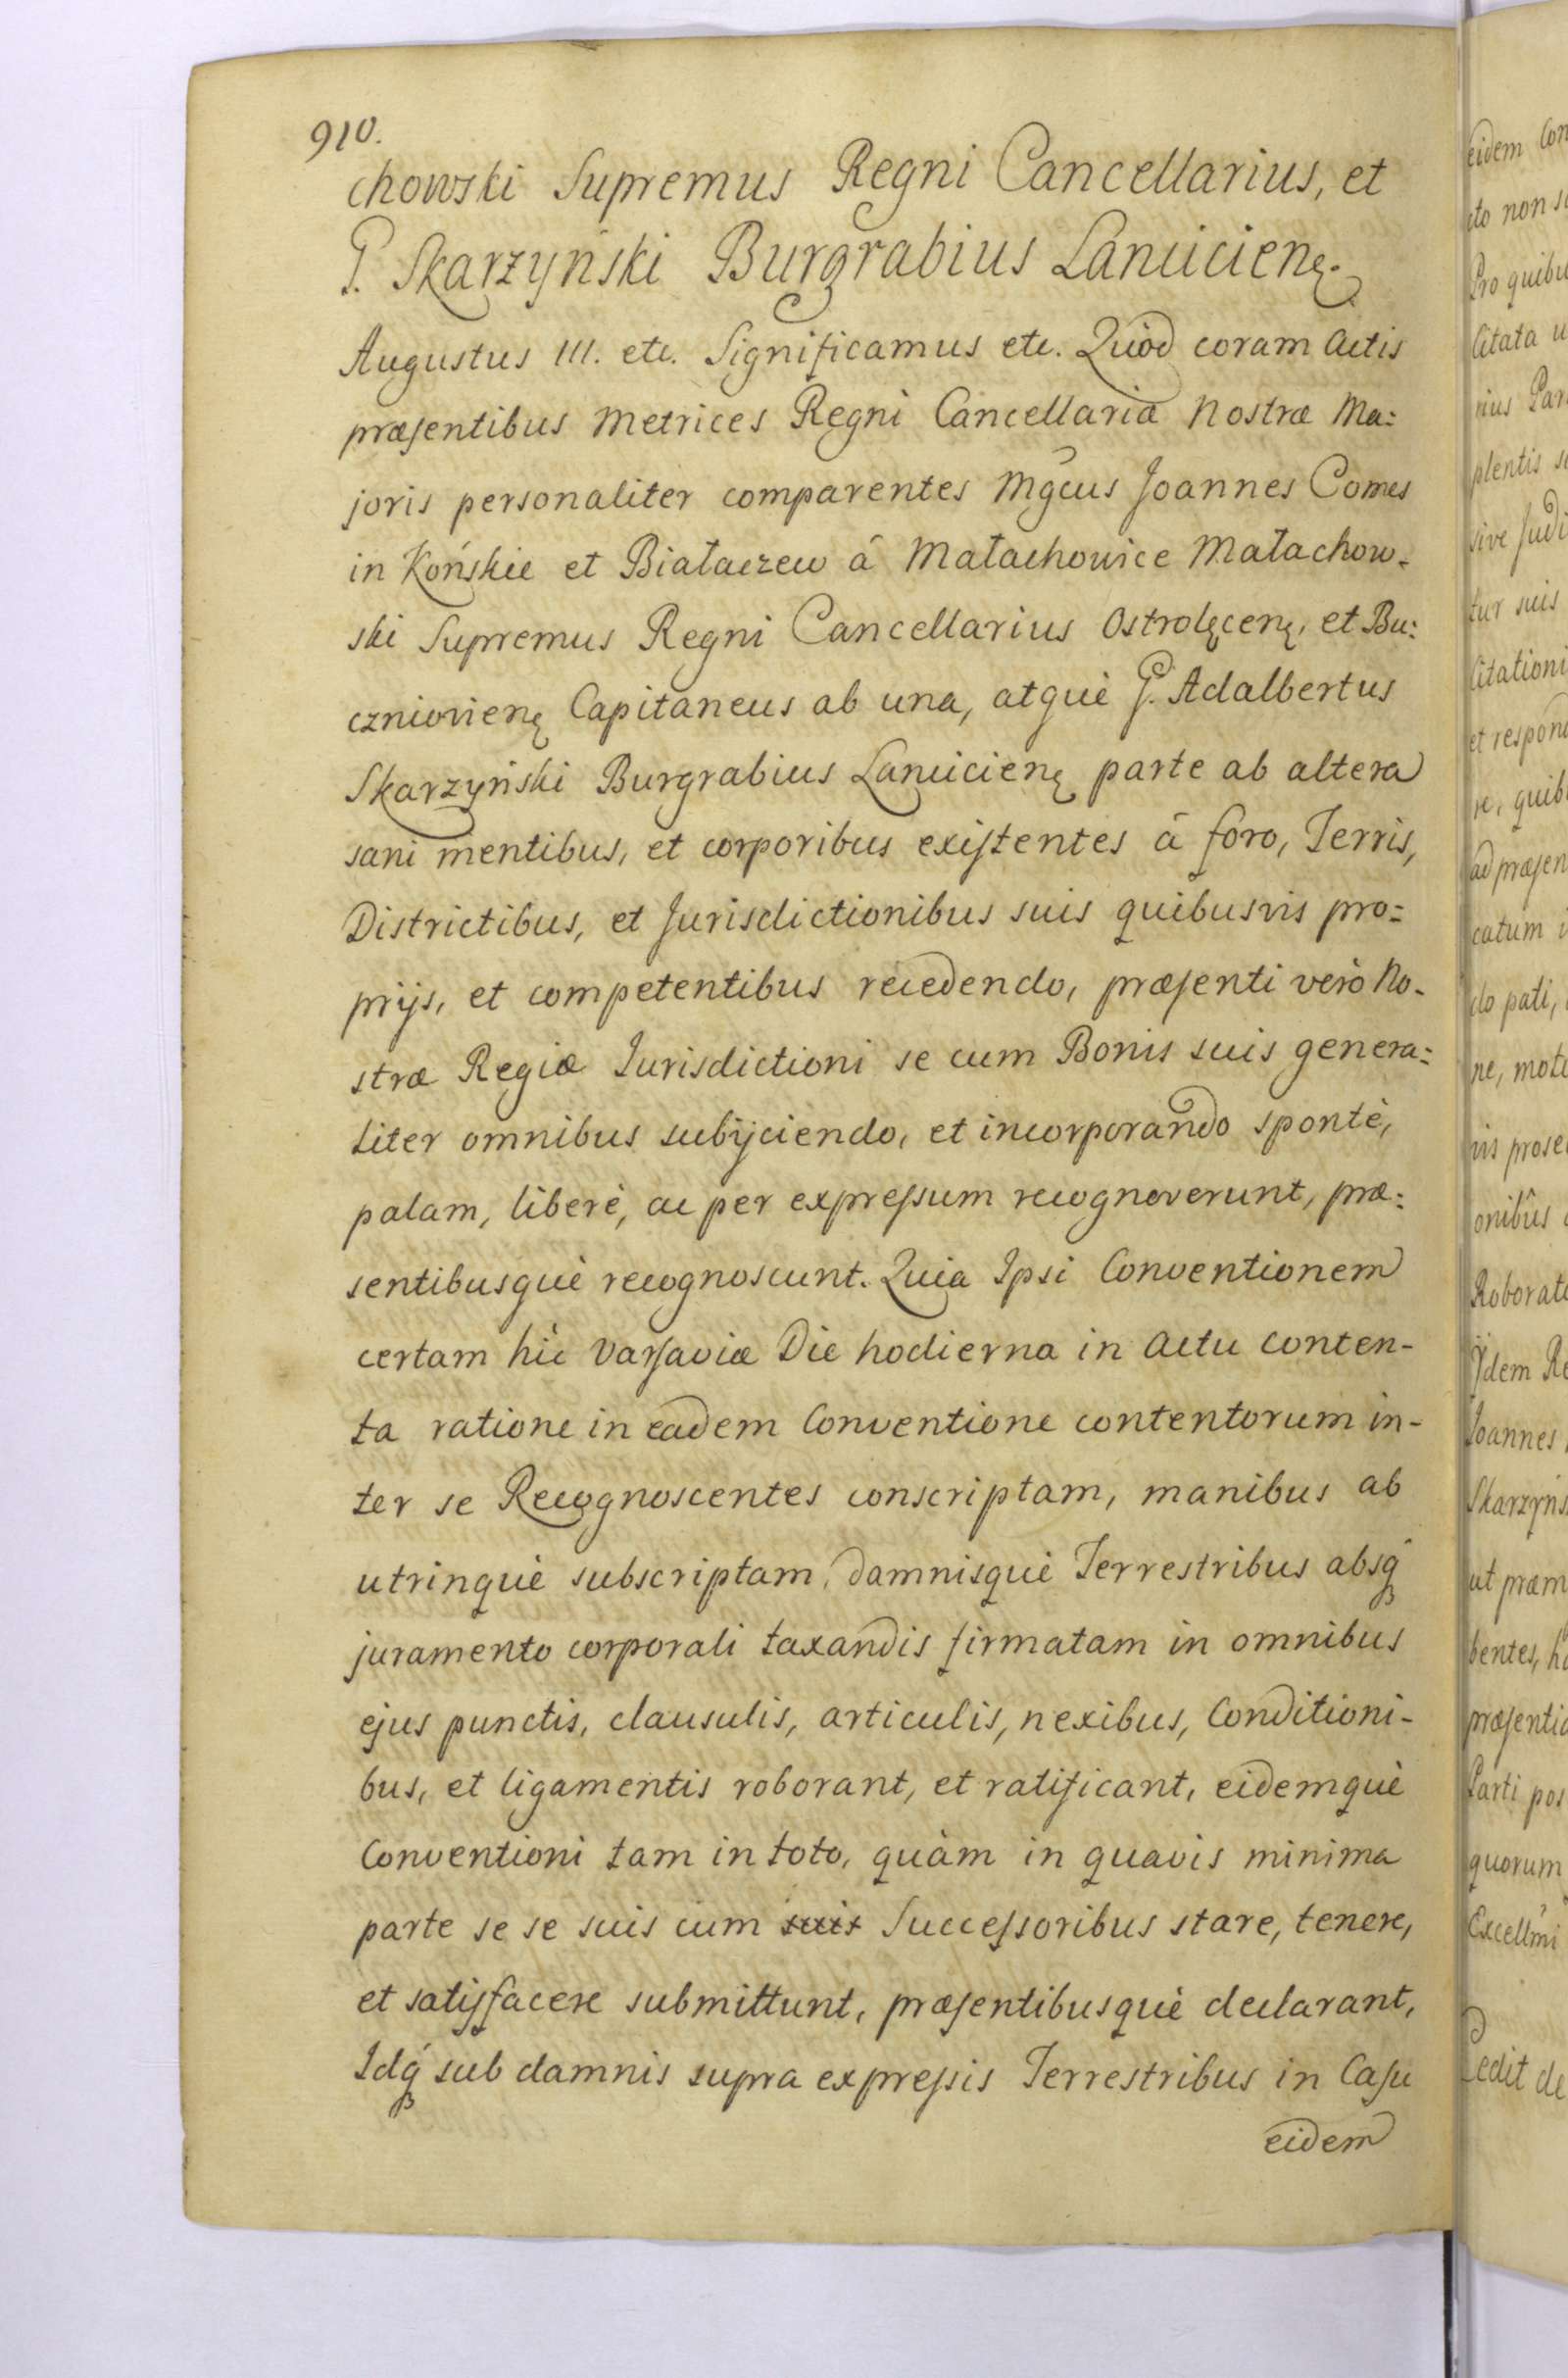 910.
chowski Supremus Regni Cancellarius, et
G. Skarzyński Burgrabius Lancicienę.
Augustus III. etc. Significamus etc. Quòd coram Actis
præsentibus Metrices Regni Cancellariæ Nostræ Ma:
joris personaliter comparentes Mgcus Joannes Comes
in Końskie et Białaczew â Małachowice Małachow-
ski Supremus Regni Cancellarius Ostrolęcenę, et Bu:
czniovienę Capitaneus ab una, atquè G. Adalbertus
Skarzyński Burgrabius Lancicienę parte ab altera
sani mentibus, et corporibus existentes â foro, Terris,
Districtibus, et Jurisdictionibus suis quibusvis pro=
prijs, et competentibus recedendo, præsenti verò No-
stræ Regiæ Iurisdictioni se cum Bonis suis genera=
liter omnibus subijciendo, et incorporando spontè,
palam, liberè, ac per expressum recognoverunt, præ:
sentibusquè recognoscunt. Quia Ipsi Conventionem
certam hìc Varsaviæ Die hodierna in Actu conten-
ta ratione in eadem Conventione contentorum in-
ter se Recognoscentes conscriptam, manibus ab
utrinquè subscriptam, damnisquè Terrestribus absq́
juramento corporali taxandis firmatam in omnibus
ejus punctis, clausulis, articulis, nexibus, Conditioni-
bus, et ligamentis roborant, et ratificant, eidemquè
Conventioni tam in toto, quàm in quavis minima
parte se se suis cum suis Successoribus stare, tenere,
et satisfacere submittunt, præsentibusquè declarant,
Idq́ sub damnis supra expressis Terrestribus in Casu
eidem
eidem Con
Pro quibu
Citata u
rius Par
plentis s
sive Judi
tur suis
Citationi
et respon
re, quib
ad præsen
catum i
do pati,
ne, mot
vis prose
onibûs
Roborat
Ijdem Re
Joannes
Skarzyns
ut præm
bentes, h
præsenti
Parti pos
quorum
Excellmi